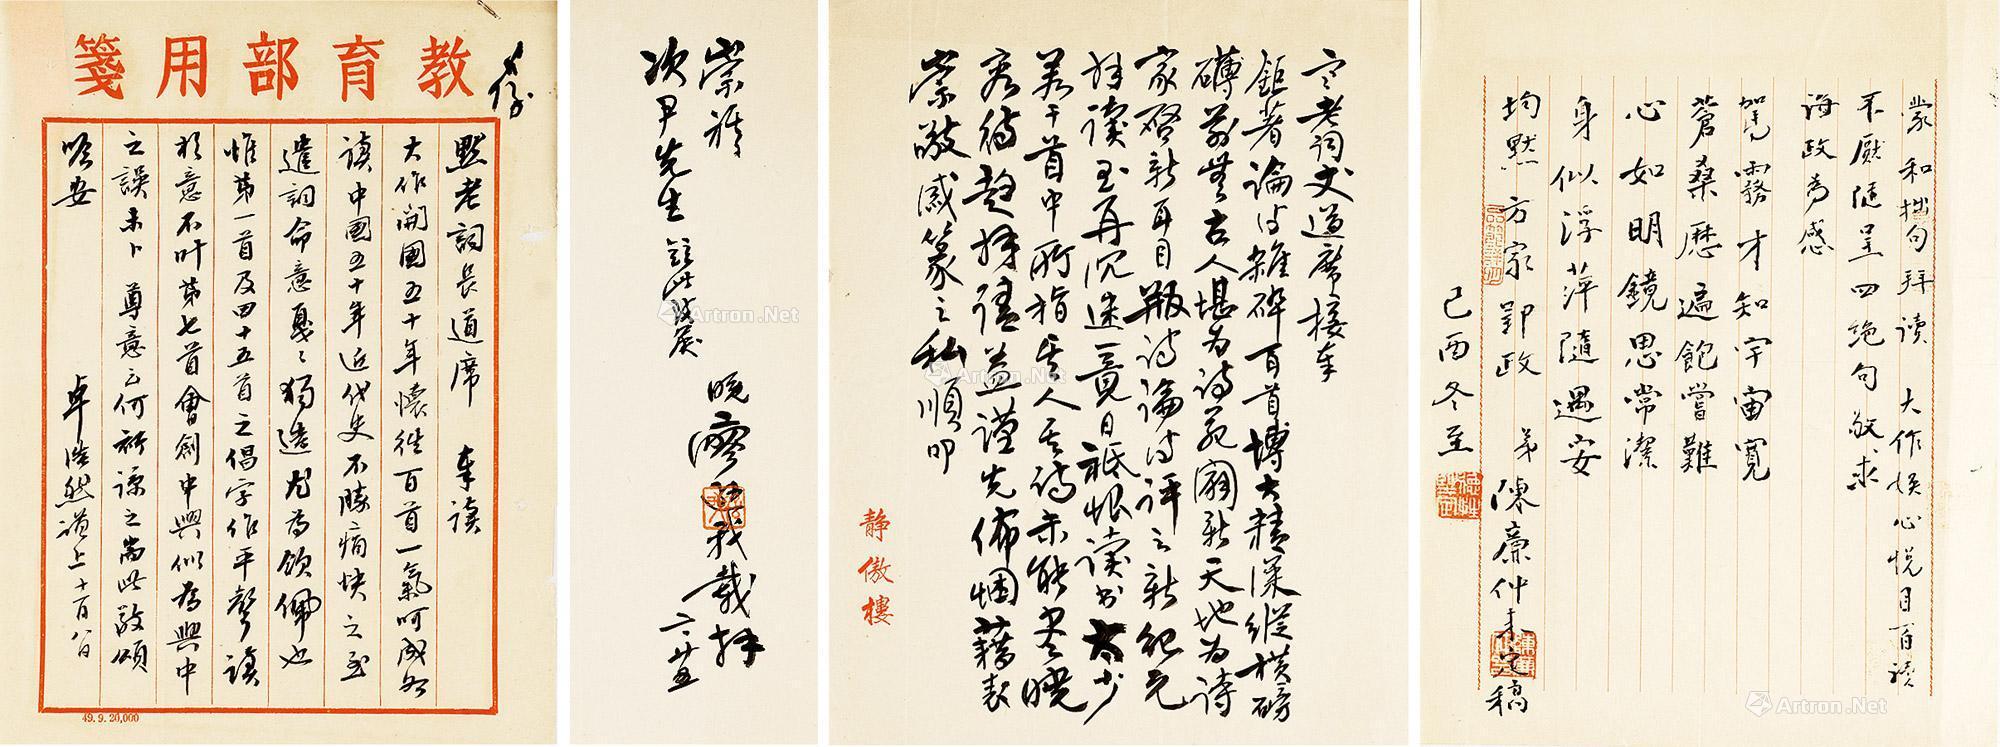 教育部用箋
存
默老詞長道席 奉讀
大作開國五十年懷往百首一氣呵成如
讀中國五十年近代史不勝痛快之至
遣詞命意戛〻獨造尤為欽佩也
惟第一首及四十五首之倡字作平聲讀
於意不叶第七首會劍中興似為興中
之誤未卜 尊意云何祈諒之耑此敬頌
吟安 卓浩然謹上 十一月八日
49.9.20,000
崇祺
次尹先生
晓廖 載拜
六、廿五
老詞丈道席接奉
鉅著論詩雜碎百首博大精深縱橫磅
礴前無古人堪為詩苑闢新天地為詩
家啓新耳目 詩論詩評之新紀元
拜讀至再沉迷竟日祗恨讀書太少
若干首中所指其人其詩未能盡曉
容待趨拜請益謹先佈悃藉表
崇敬感篆之私順叩
静傲樓
蒙和拙句拜读 大作娱心悦目百读
不厭隨呈四絶句敬求
海政為感
駕霧才知宇宙寬
蒼桑歷遍飽嘗難
心如明鏡思常潔
身似浮萍隨遇安
均默方家郢政 弟陳廉仲未定稿
己酉冬至
Artron.Net